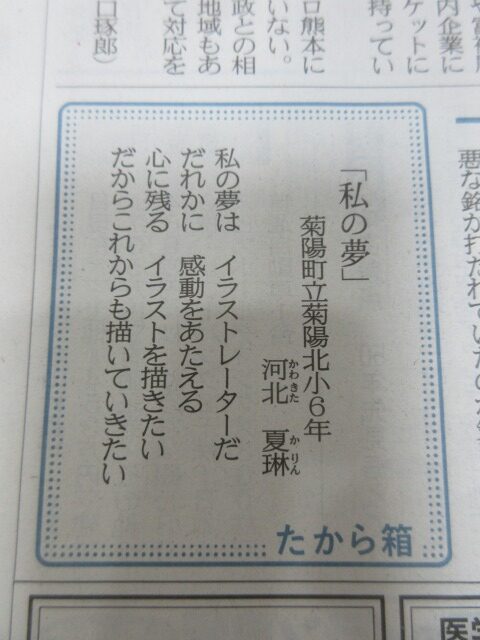 口熊本に
いない。
政との相
地域もあ
て対応を
口琢郎)
内企業に
ケットに
持ってい
「私の夢」
菊陽町立菊陽北小6年
河北 夏琳
かわきた かりん
私の夢は イラストレーターだ
だれかに 感動をあたえる
心に残る イラストを描きたい
だからこれからも描いていきたい
たから箱